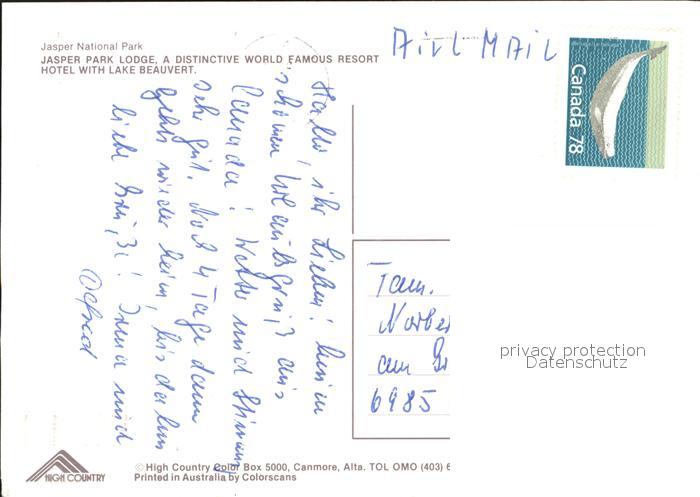 Jasper National Park
JASPER PARK LODGE, A DISTINCTIVE WORLD FAMOUS RESORT
HOTEL WITH LAKE BEAUVERT.
Air MAIL
Canada 78
Hallo, ihr Lieben!
schönen Urlaubsgruß aus
Canada! Wetter und Stimmung
sehr gut. Noch 4 Tage dann
geht's wieder heim, bis dahin
liebe Grüße! und
Fam.
am
6985
privacy protection
Datenschutz
HIGH COUNTRY
© High Country Color Box 5000, Canmore, Alta. TOL OMO (403) 6
Printed in Australia by Colorscans